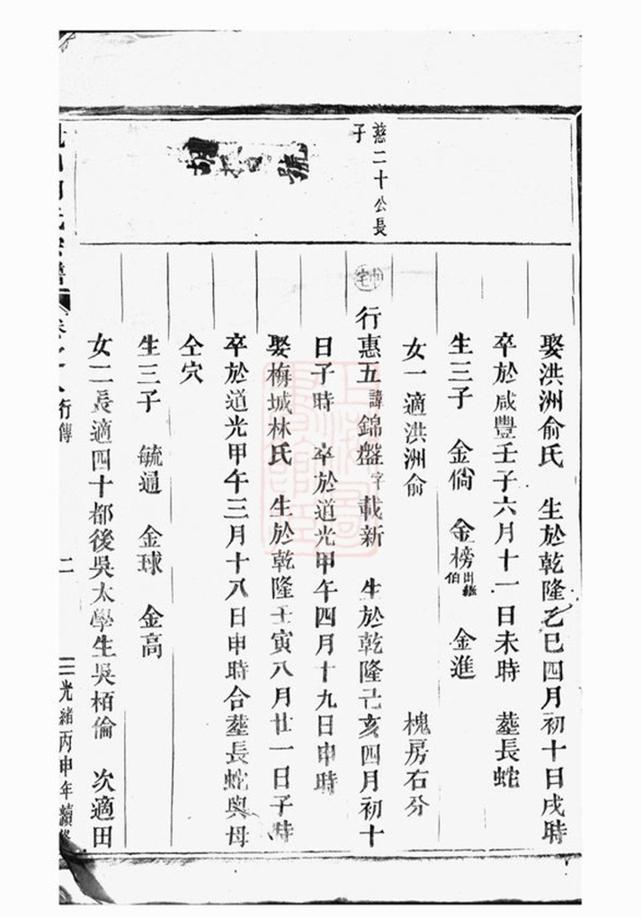 慈二十公長
子
娶洪洲俞氏 生於乾隆乙巳四月初十日戌時
卒於咸豐壬子六月十一日未時 塟長蛇
生三子 金倘 金榜出繼伯 金進
女一適洪洲俞 槐房右分
行惠五諱錦盤字載新 生於乾隆己亥四月初十
日子時 卒於道光甲午四月十九日申時
娶梅城林氏 生於乾隆壬寅八月廿一日子時
卒於道光甲午三月十八日申時合塟長蛇與母
仝穴
生三子 毓通 金球 金高
女二長適四十都後吳太學生吳栢倫 次適田
行傳 二 光緒丙申年續修